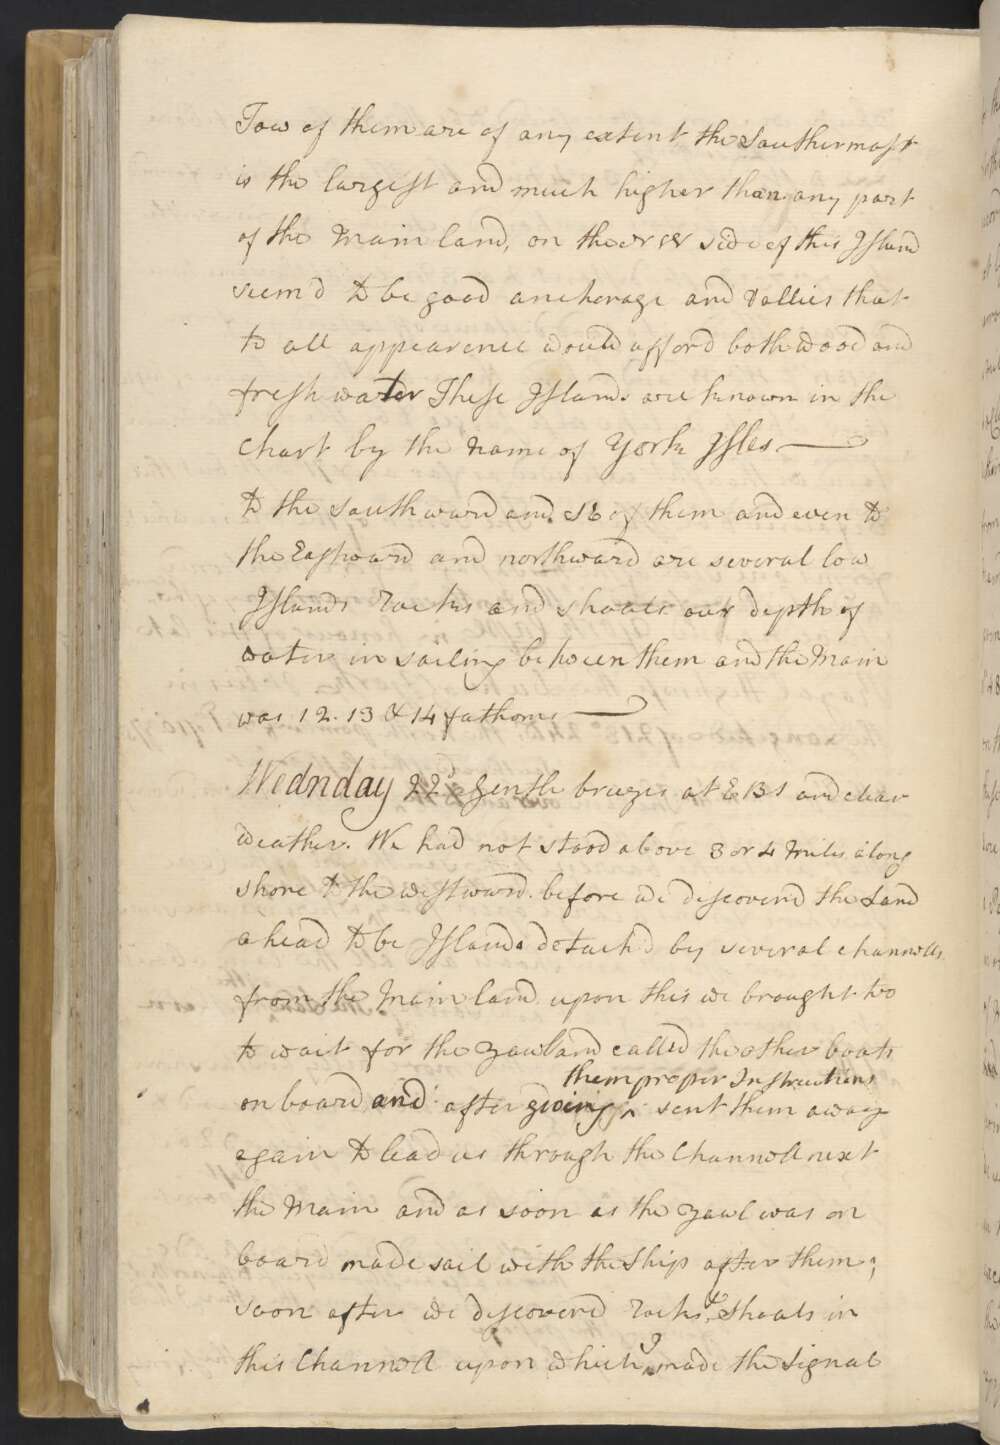 Tow of them are of any extent the Southermost
is the largest and much higher than any part
of the Main land, on the NW side of this Island
seem'd to be good anchorage and Vallies that
to all appearence would afford both wood and
fresh water These Islands are known in the
Chart by the name of York Isles
to the southward and SE of them and even to
the Eastward and northward are several low
Islands rocks and shoals our depth of
water in sailing between them and the Main
was 12. 13 & 14 fathoms
Wednday 22d Gentle breezes at EBS and clear
weather. We had not stood above 3 or 4 Miles along
shore to the westward before we discoverd the Land
ahead to be Islands detach'd by several channells
from the Main land upon this we brought too
to wait for the yawl and called the other boats
them proper Instructions
on board and after giveing ^ sent them away
again to lead us through the Channell next
the Main and as soon as the yawl was on
board made sail with the Ship after them;
soon after we discoverd rocks & Shoals in
this Channell upon which I made the Signal